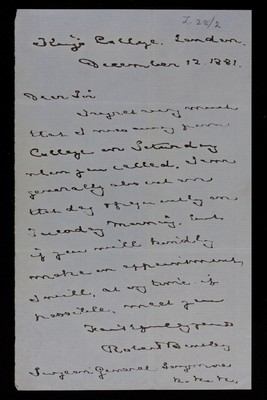 Z 28/2
King's College. London.
December 12. 1881.
Dear Sir
I regret very much
that I was away from
College on Saturday
when you called, I am
generally absent on
that day & frequently on
Tuesday Morning. but
if you will kindly
make an appointment,
I will, at any time if
possible, meet you
Faithfully yours
Robert Bentley
Surgeon General